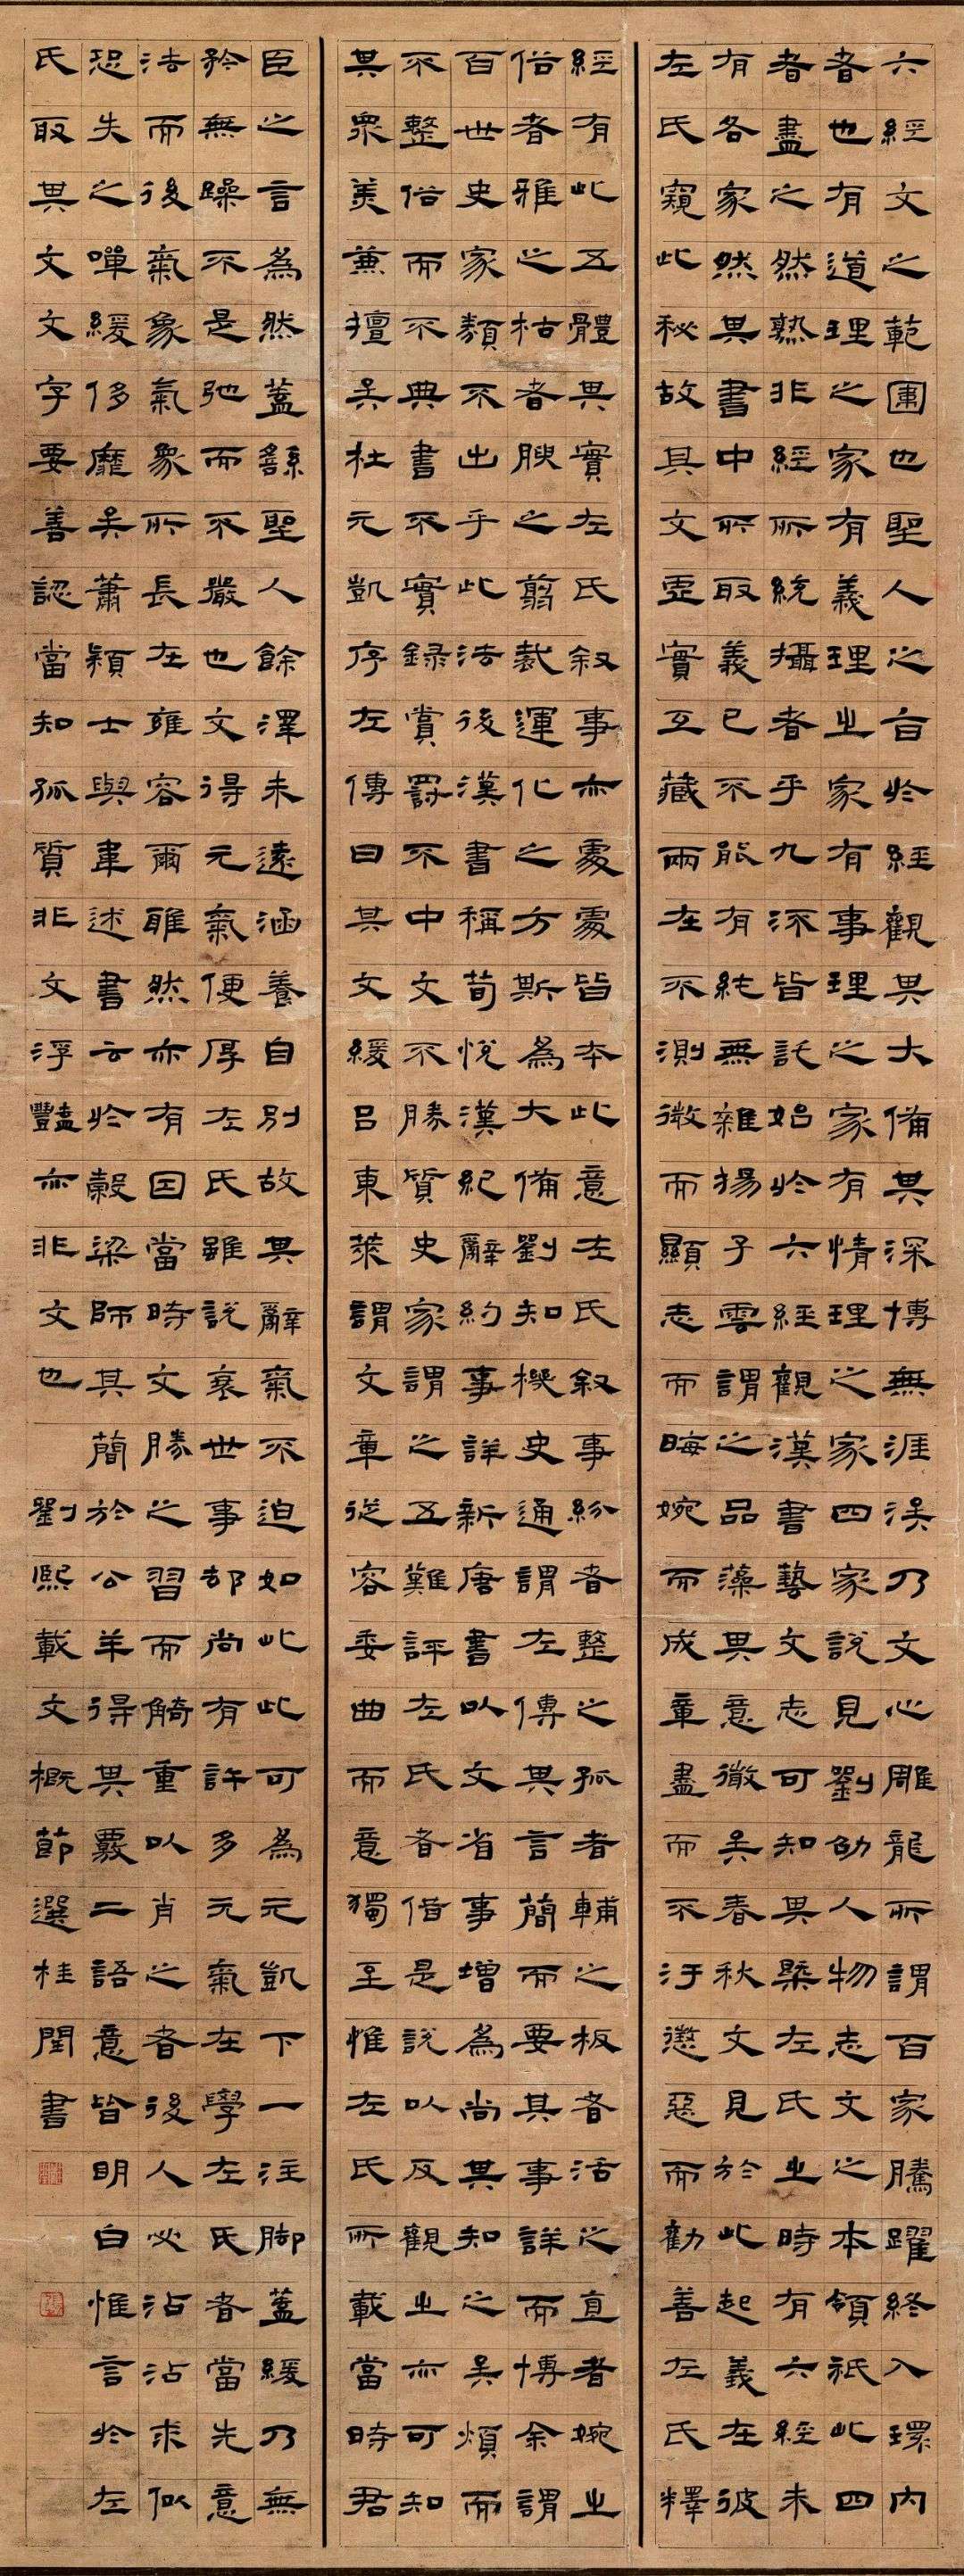 六經文之範圍也聖人之旨於經觀其大備其深博無涯涘乃文心雕龍所謂百家騰躍終入環內
者也有道理之家有義理之家有事理之家有情理之家四家說見劉劭人物志文之本領祇此四
者盡之然熟非經所統攝者乎九流皆託始於六經觀漢書藝文志可知其槩左氏之時有六經未
有各家然其書中所取義已不能有純無雜揚子雲謂之品藻其意微矣春秋文見於此起義在彼
左氏窺此秘故其文虛實互藏兩在不測微而顯志而晦婉而成章盡而不汙懲惡而勸善左氏釋
經有此五體其實左氏敘事亦處處皆本此意左氏敘事紛者整之孤者輔之板者活之直者婉之
俗者雅之枯者腴之翦裁運化之方斯為大備劉知幾史通謂左傳其言簡而要其事詳而博余謂
百世史家類不出乎此法後漢書稱荀悅漢紀辭約事詳新唐書以文省事增為尚其知之矣煩而
不整俗而不典書不實錄賞罰不中文不勝質史家謂之五難評左氏者借是說以反觀之亦可知
其眾美兼擅矣杜元凱序左傳曰其文緩呂東萊謂文章從容委曲而意獨至惟左氏所載當時君
臣之言為然蓋繇聖人餘澤未遠涵養自別故其辭氣不迫如此此可為元凱下一注腳蓋緩乃無
矜無躁不是弛而不嚴也文得元氣便厚左氏雖說衰世事卻尚有許多元氣在學左氏者當先意
法而後氣象氣象所長在雍容爾雅然亦有因當時文勝之習而觭重以肖之者後人必沾沾求似
恐失之嘽緩侈靡矣蕭穎士與韋述書云於穀梁師其簡於公羊得其覈二語意皆明白惟言於左
氏取其文文字要善認當知孤質非文浮豔亦非文也 劉熙載文概節選桂閏書